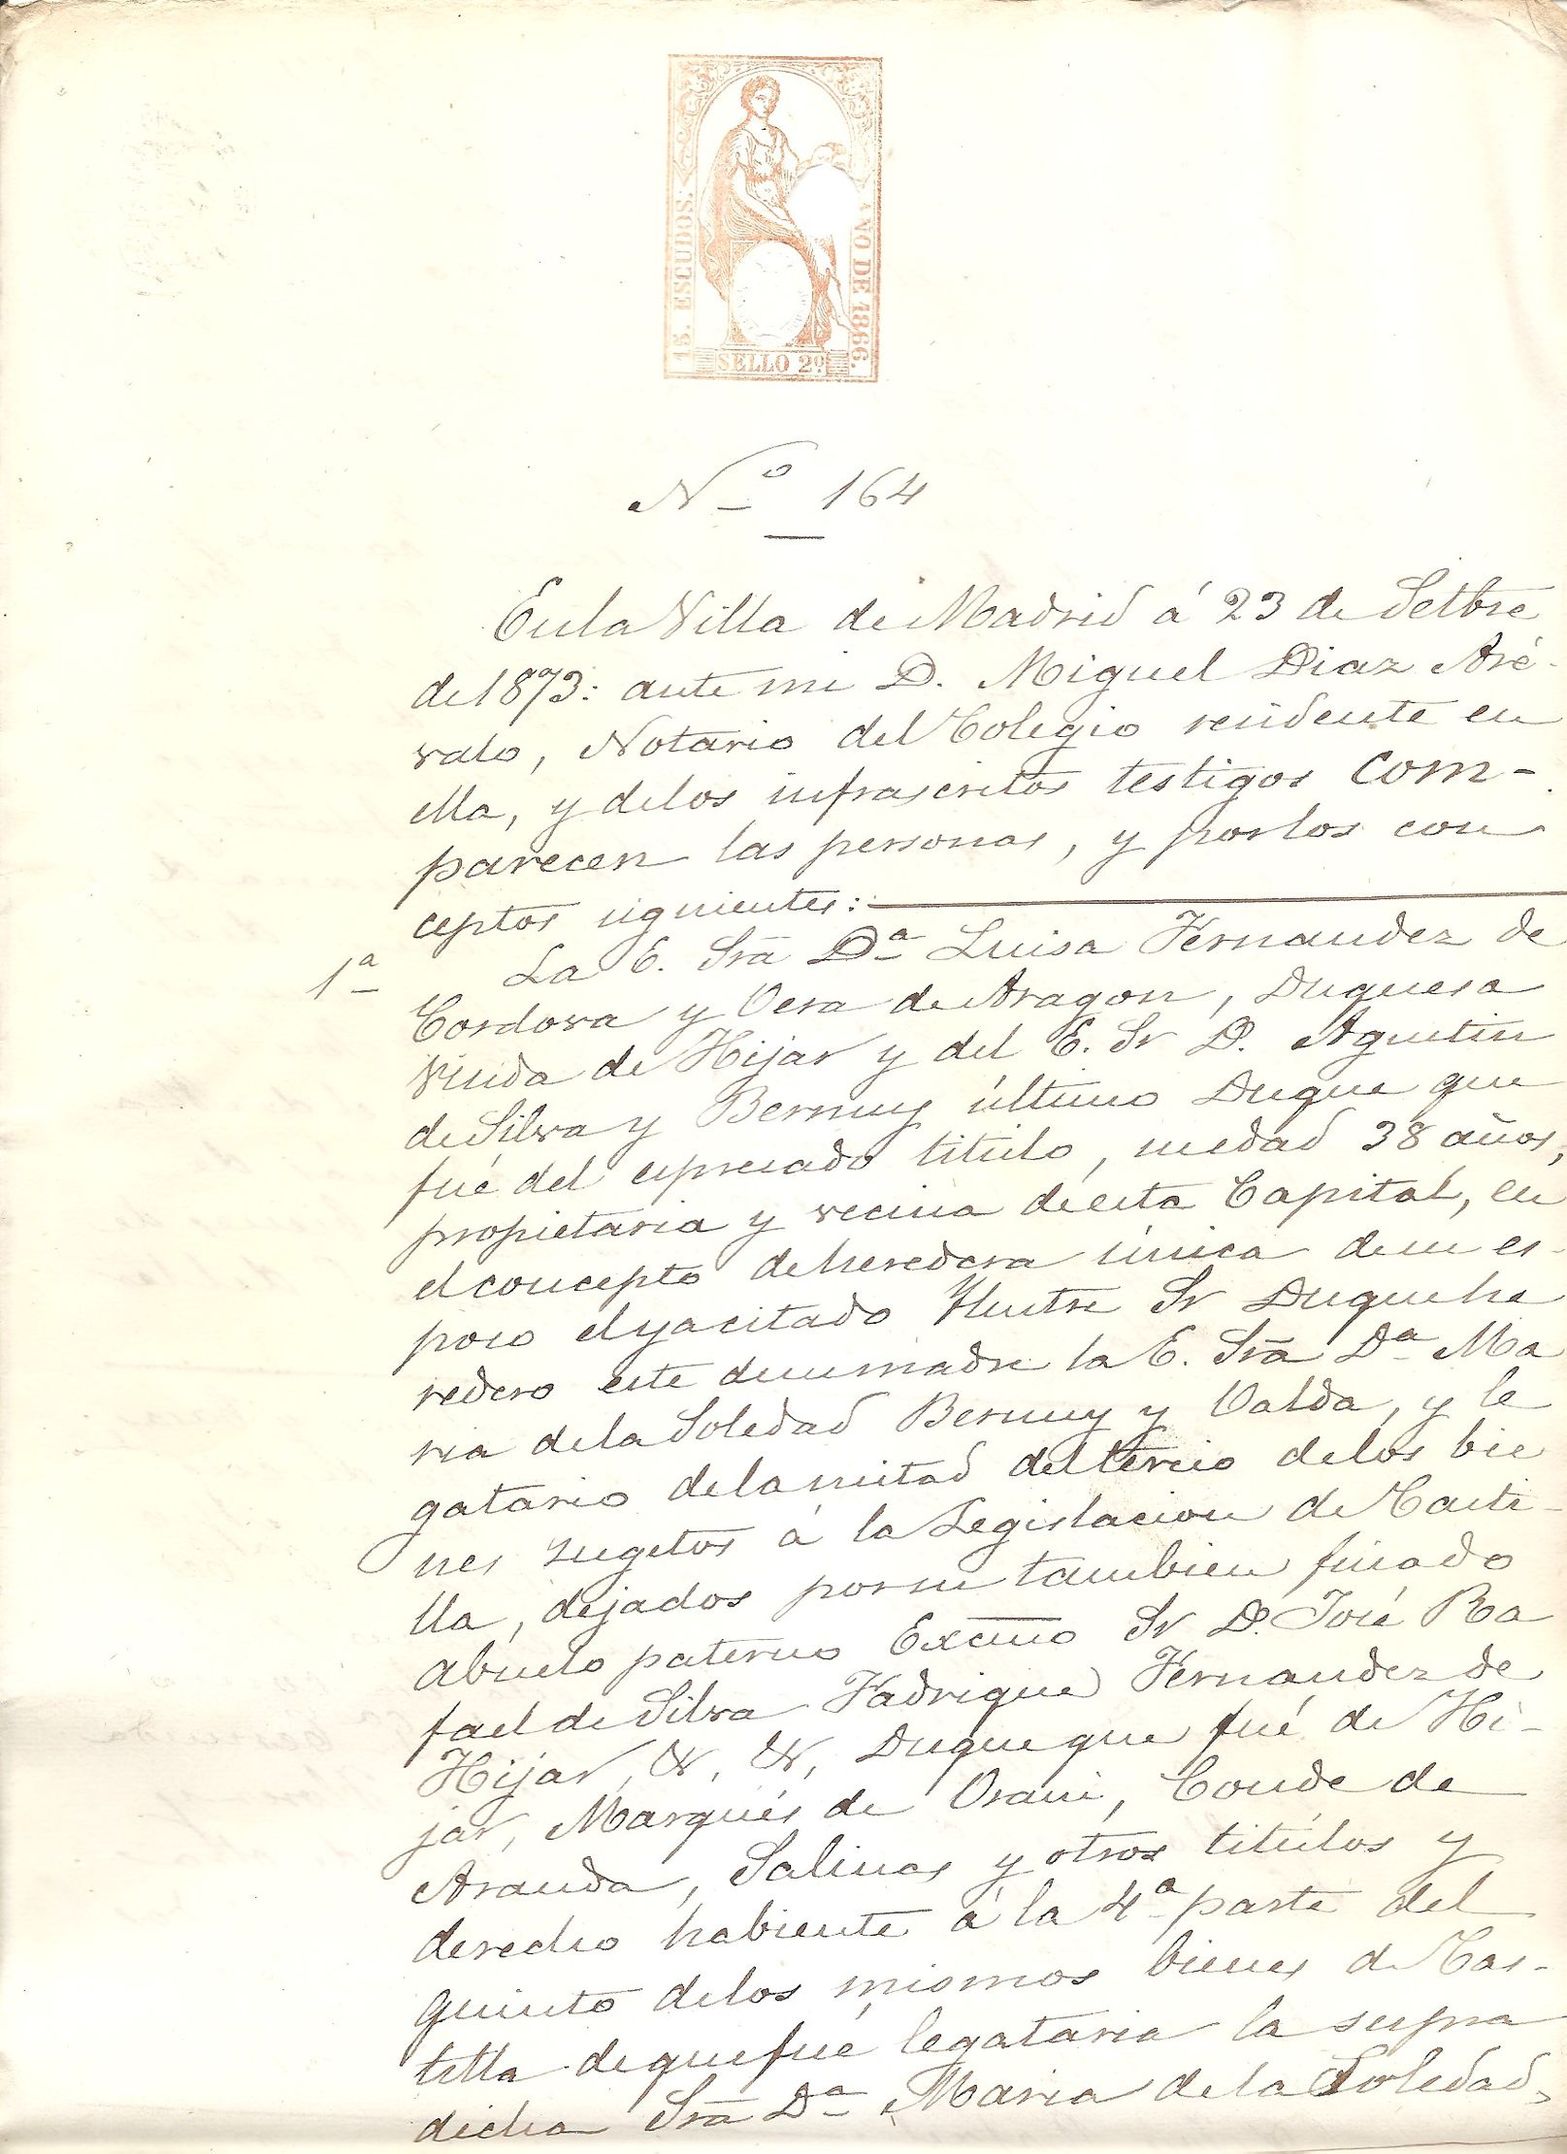 15. ESCUDOS.
AÑO DE 1866.
SELLO 2º
Nº 164
En la Villa de Madrid á 23 de Setbre
de 1873: ante mi D. Miguel Diaz Aré-
valo, Notario del Colegio residente en
ella, y de los infrascritos testigos com-
parecen las personas, y por los con
ceptos siguientes:
1ª La E. Sra Dª Luisa Fernandez de
Cordova y Vera de Aragon, Duquesa
Viuda de Hijar y del E. Sr D. Agustin
de Silva y Bernuy último Duque que
fué del espresado titulo, su edad 38 años,
propietaria y vecina de esta Capital, en
el concepto de heredera única de su es-
poso el ya citado Ilustre Sr Duque he
redero este de su madre la E. Sra Dª Ma
ria de la Soledad Bernuy y Valda, y le
gatario de la mitad del tercio de los bie
nes sugetos á la Legislacion de Casti-
lla, dejados por su tambien finado
abuelo paterno Excmo Sr D. José Ra
fael de Silva Fadrique Fernandez de
Hijar, &, &, Duque que fué de Hi-
jar, Marqués de Orani, Conde de
Aranda, Salinas y otros titulos y
derecho habiente á la 4ª parte del
quinto de los mismos bienes de Cas-
tilla de que fué legataria la supra
dicha Sra Dª Maria de la Soledad,